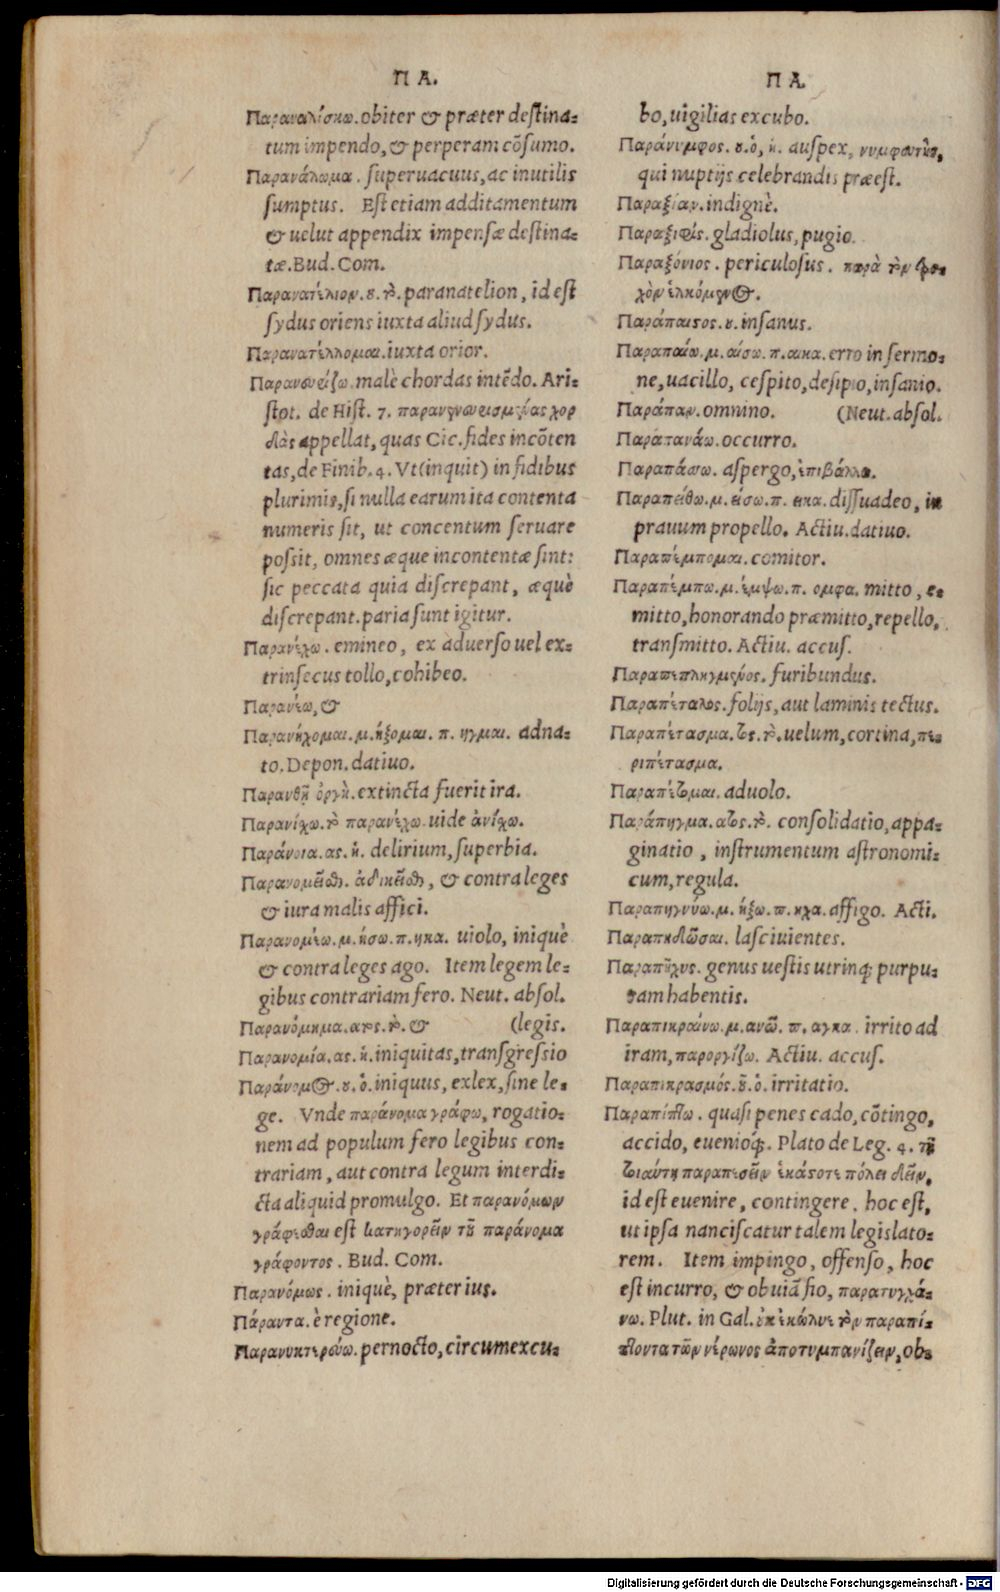 Π Α.
Παραναλίσκω. obiter & præter destina-
tum impendo, & perperam cõsumo.
Παρανάλωμα. superuacuus, ac inutilis
sumptus. Est etiam additamentum
& uelut appendix impensæ destina-
tæ. Bud. Com.
Παρανατέλλιον. ου. τὸ. paranatelion, id est
sydus oriens iuxta aliud sydus.
Παρανατέλλομαι. iuxta orior.
malè chordas intẽdo. Ari-
stot. de Hist. 7. χορ
δὰς appellat, quas Cic. fides incõten
tas, de Finib. 4. Vt (inquit) in fidibus
plurimis, si nulla earum ita contenta
numeris sit, ut concentum seruare
possit, omnes æque incontentæ sint:
sic peccata quia discrepant, æquè
discrepant. paria sunt igitur.
Παρανέχω. emineo, ex aduerso uel ex-
trinsecus tollo, cohibeo.
Παρανέω, &
Παρανήχομαι. μ. ήξομαι. π. ηγμαι. adna-
to. Depon. datiuo.
Παρανθῇ ὀργὴ. extincta fuerit ira.
Παρανίχω. τὸ παρανέχω. uide ἀνίχω.
Παράνοια. ας. ἡ. delirium, superbia.
Παρανομεῖσθαι. ἀδικεῖσθαι, & contra leges
& iura malis affici.
Παρανομέω. μ. ήσω. π. ηκα. uiolo, iniquè
& contra leges ago. Item legem le-
gibus contrariam fero. Neut. absol.
Παρανόμημα. ατος. τὸ. & (legis.
Παρανομία. ας. ἡ. iniquitas, transgressio
Παράνομος. ου. ὁ. iniquus, exlex, sine le-
ge. Vnde παράνομα γράφω, rogatio-
nem ad populum fero legibus con-
trariam, aut contra legum interdi-
cta aliquid promulgo. Et παρανόμων
γράφεσθαι est κατηγορεῖν τοῦ παράνομα
γράφοντος. Bud. Com.
Παρανόμως. iniquè, præter ius.
Πάραντα. è regione.
Παρανυκτερεύω. pernocto, circumexcu-
Π Α.
bo, uigilias excubo.
Παράνυμφος. ου. ὁ, ἡ. auspex, νυμφευτὴς,
qui nuptijs celebrandis præest.
Παραξίαν. indignè.
Παραξιφίς. gladiolus, pugio.
Παραξόνιος. periculosus. παρὰ τὸν
ἑλκόμενος.
Παράπαιστος. ου. insanus.
Παραπαίω. μ. αίσω. π. αικα. erro in sermo-
ne, uacillo, cespito, desipio, insanio.
Παράπαν. omnino. (Neut. absol.
Παραπανάω. occurro.
Παραπάσσω. aspergo, ἐπιβάλλω.
Παραπείθω. μ. είσω. π. εικα. dissuadeo, in
prauum propello. Actiu. datiuo.
Παραπέμπομαι. comitor.
Παραπέμπω. μ. έμψω. π. ομφα. mitto, e-
mitto, honorando præmitto, repello,
transmitto. Actiu. accus.
Παραπεπληγμένος. furibundus.
Παραπέταλος. folijs, aut laminis tectus.
Παραπέτασμα. τος. τὸ. uelum, cortina, πε-
ριπέτασμα.
Παραπέτομαι. aduolo.
Παράπηγμα. ατος. τὸ. consolidatio, appa-
ginatio, instrumentum astronomi-
cum, regula.
Παραπηγνύω. μ. ήξω. π. ηχα. affigo. Acti.
Παραπηδῶσαι. lasciuientes.
Παραπῆχυς. genus uestis utrinq; purpu-
ram habentis.
Παραπικραίνω. μ. ανῶ. π. αγκα. irrito ad
iram, παροργίζω. Actiu. accus.
Παραπικρασμός. οῦ. ὁ. irritatio.
Παραπίπτω. quasi penes cado, cõtingo,
accido, euenioq́;. Plato de Leg. 4. τοῦ
τοιαύτη παραπεσεῖν ἑκάστοτε πόλει δεῖν,
id est euenire, contingere, hoc est,
ut ipsa nanciscatur talem legislato-
rem. Item impingo, offenso, hoc
est incurro, & obuiã fio, παρατυγχά-
νω. Plut. in Gal. οὐκ ἐκώλυε τὸν παραπί-
πτοντα τῶν νέρωνος ἀποτυμπανίζειν, ob-
Digitalisierung gefördert durch die Deutsche Forschungsgemeinschaft - DFG